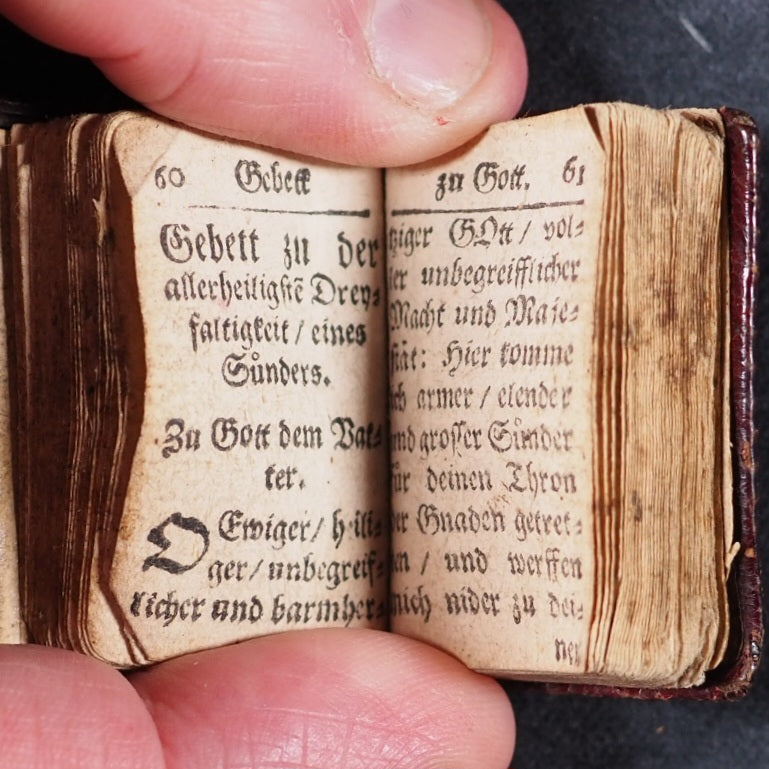 60 Gebett
Gebett zu der
allerheiligstē Drey-
faltigkeit / eines
Sůnders.
Zu Gott dem Vat-
ter.
O Ewiger / heili-
ger / unbegreif-
licher und barmher-
zu Gott. 61
tziger GOtt / vol-
ler unbegreifflicher
Macht und Maje-
stät: Hier komme
ich armer / elender
und grosser Sůnder
für deinen Thron
der Gnaden getret-
ten / und werffen
mich nider zu dei-
nen